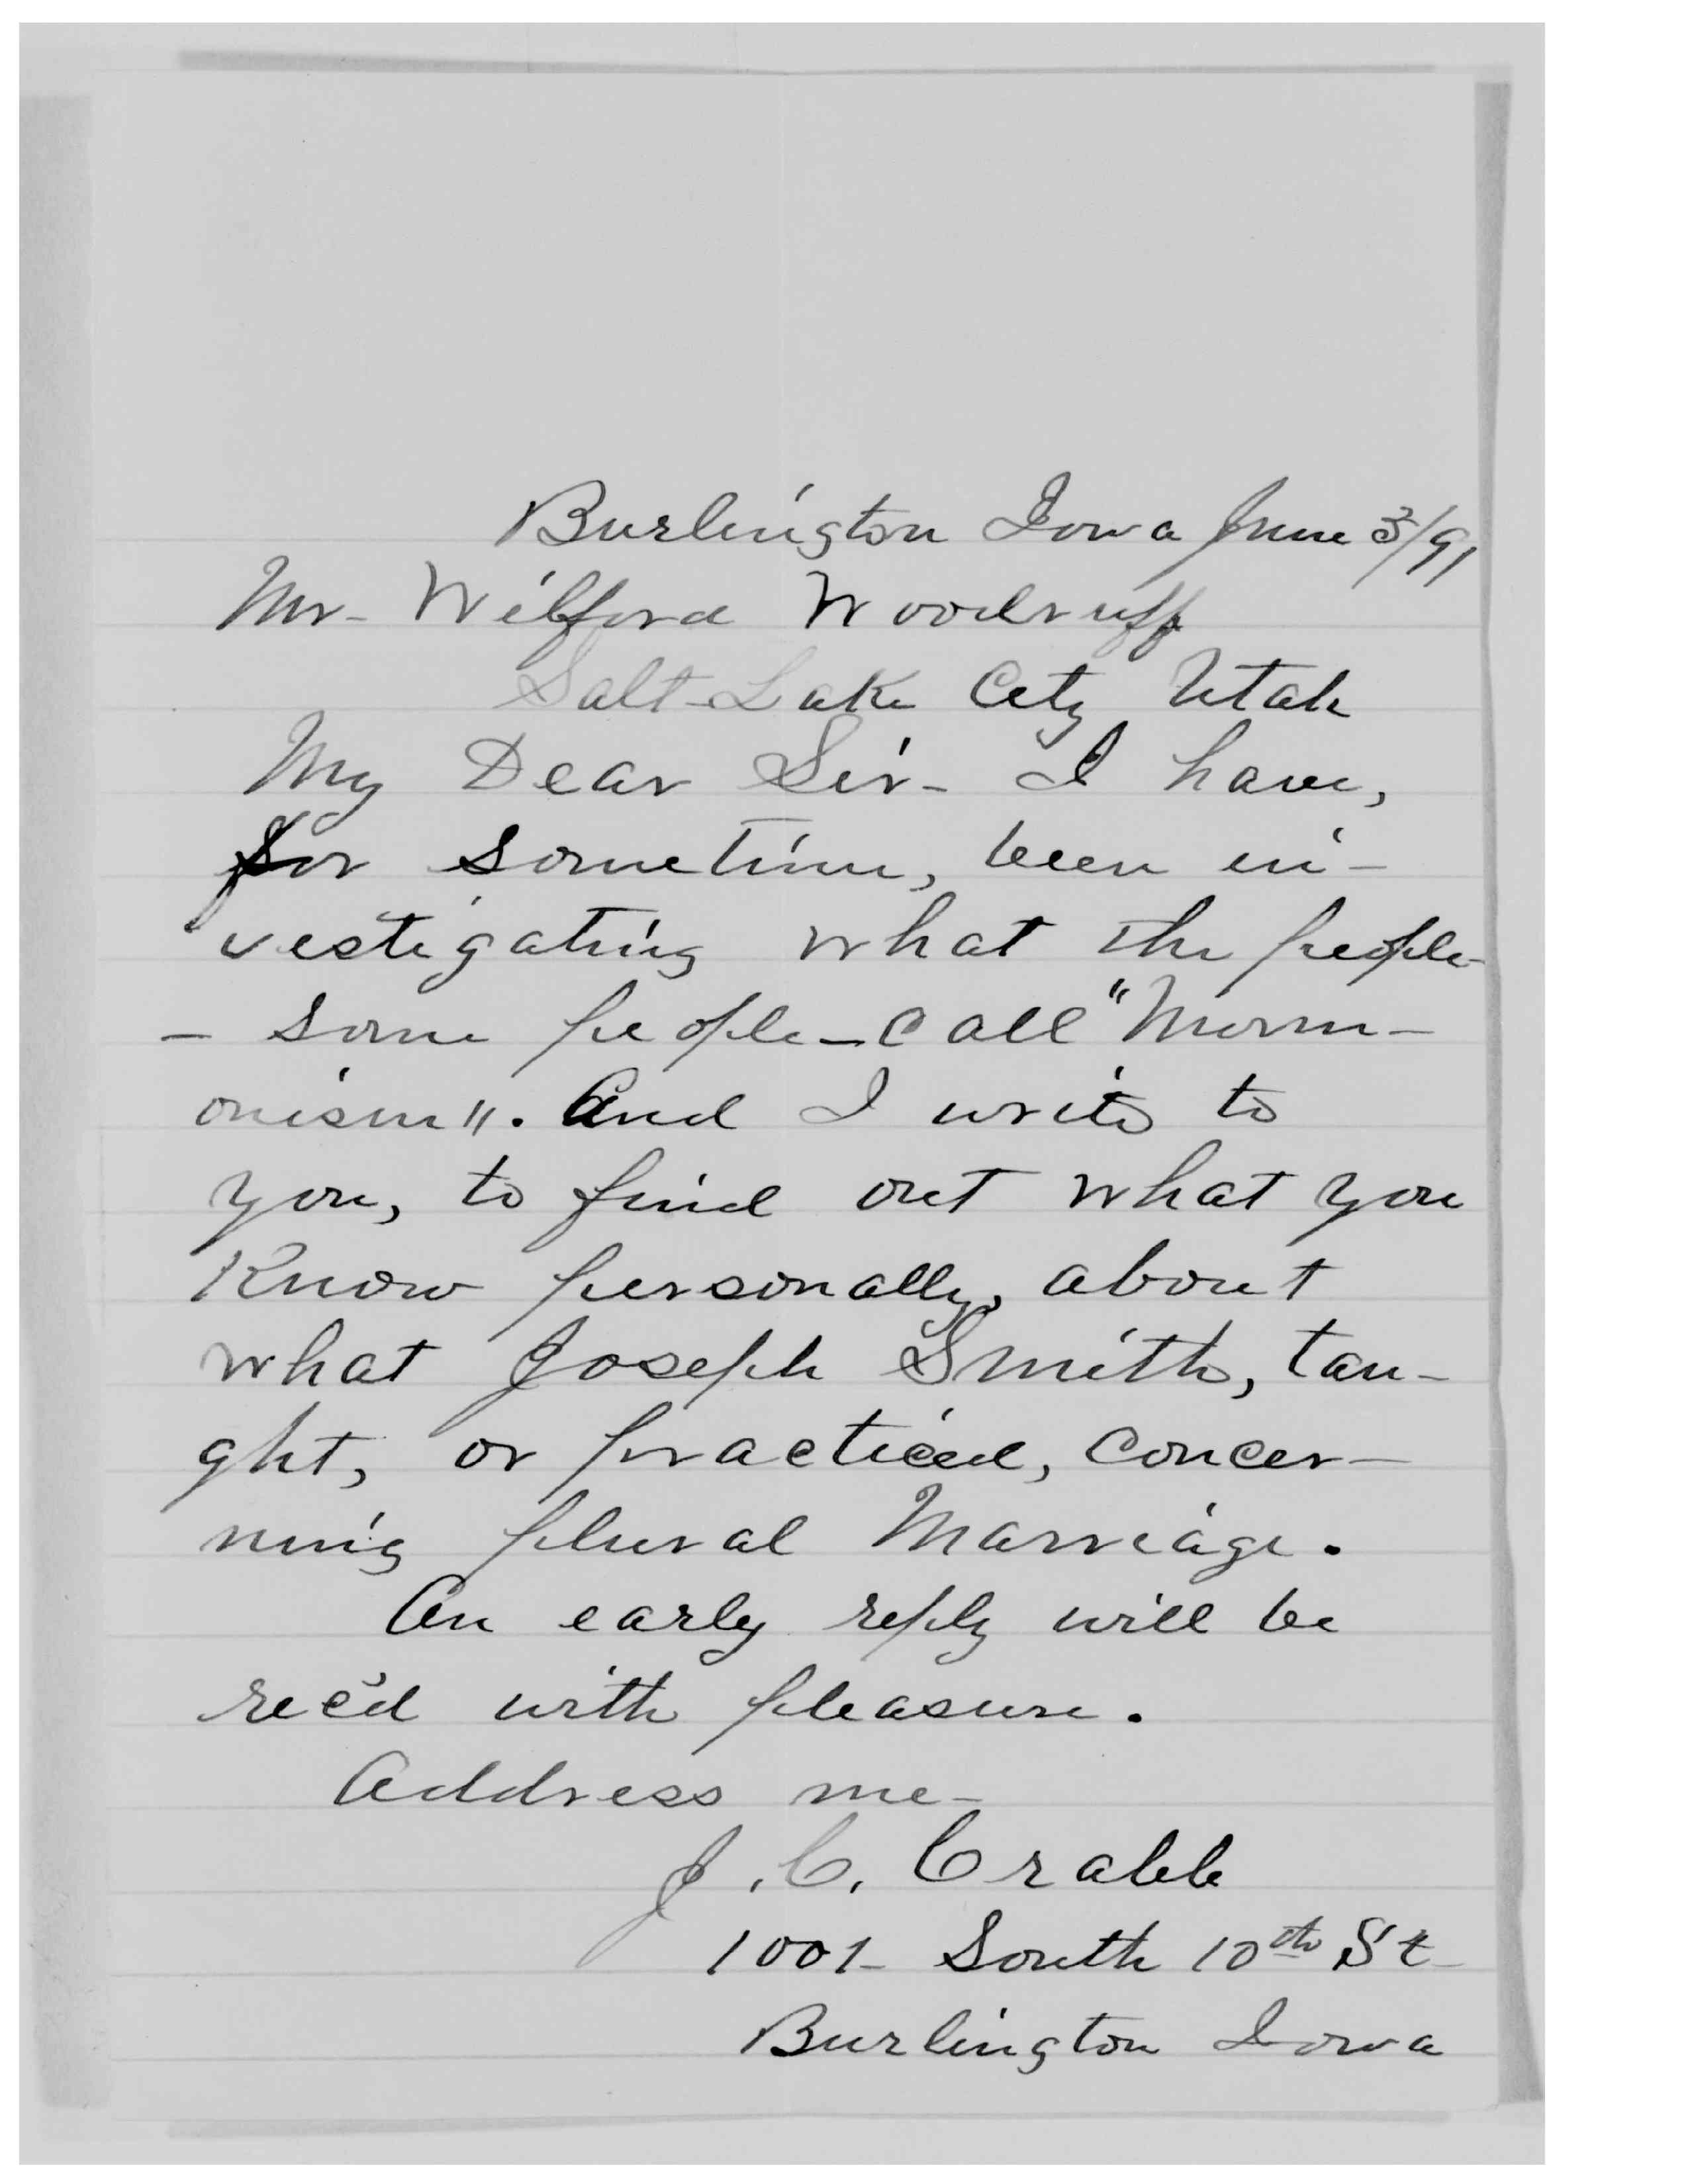 Burlington Iowa June 3/91
Mr- Wilford Woodruff
Salt-Lake City Utah
My Dear Sir- I have,
for sometime, been in-
vestigating what the people-
- some people - call "Morm-
onism". And I write to
you, to find out what you
Know personally, about
what Joseph Smith, tau-
ght, or practiced, concer-
ning plural Marriage.
An early reply will be
rec'd with pleasure.
Address me-
J. C. Crabb
1001- South 10th St
Burlington Iowa